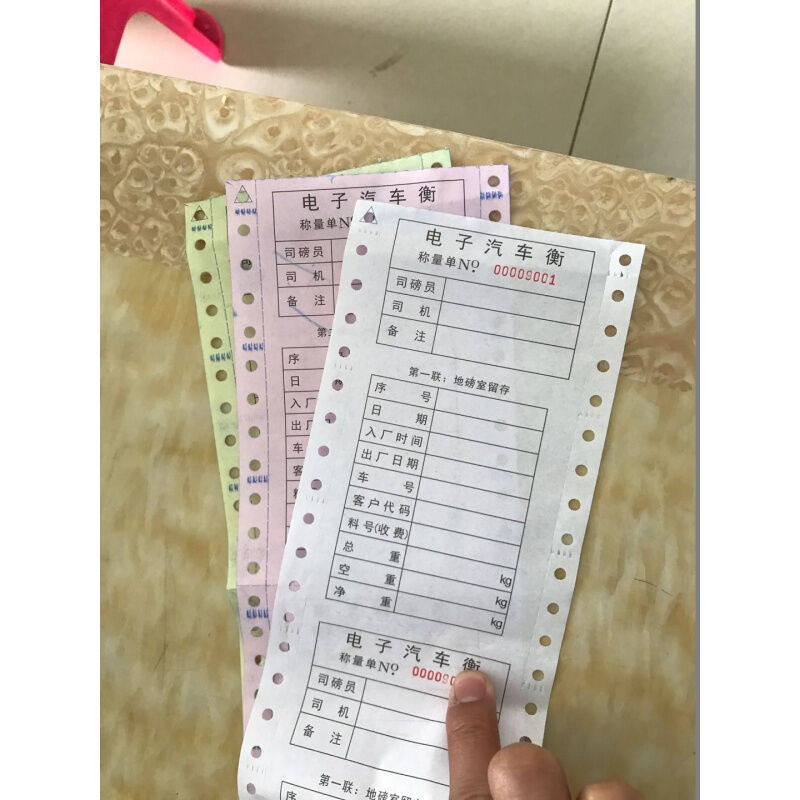 电子汽车衡
称量单No
司磅员
司机
备注
第
序
日
入厂
出厂
车
电子汽车衡
称量单No. 00009001
司磅员
司机
备注
第一联：地磅室留存
序号
日期
入厂时间
出厂日期
车号
客户代码
料号(收费)
总重
空重 kg
净重 kg
kg
电子汽车衡
称量单No. 00009
司磅员
司机
备注
第一联：地磅室留
序